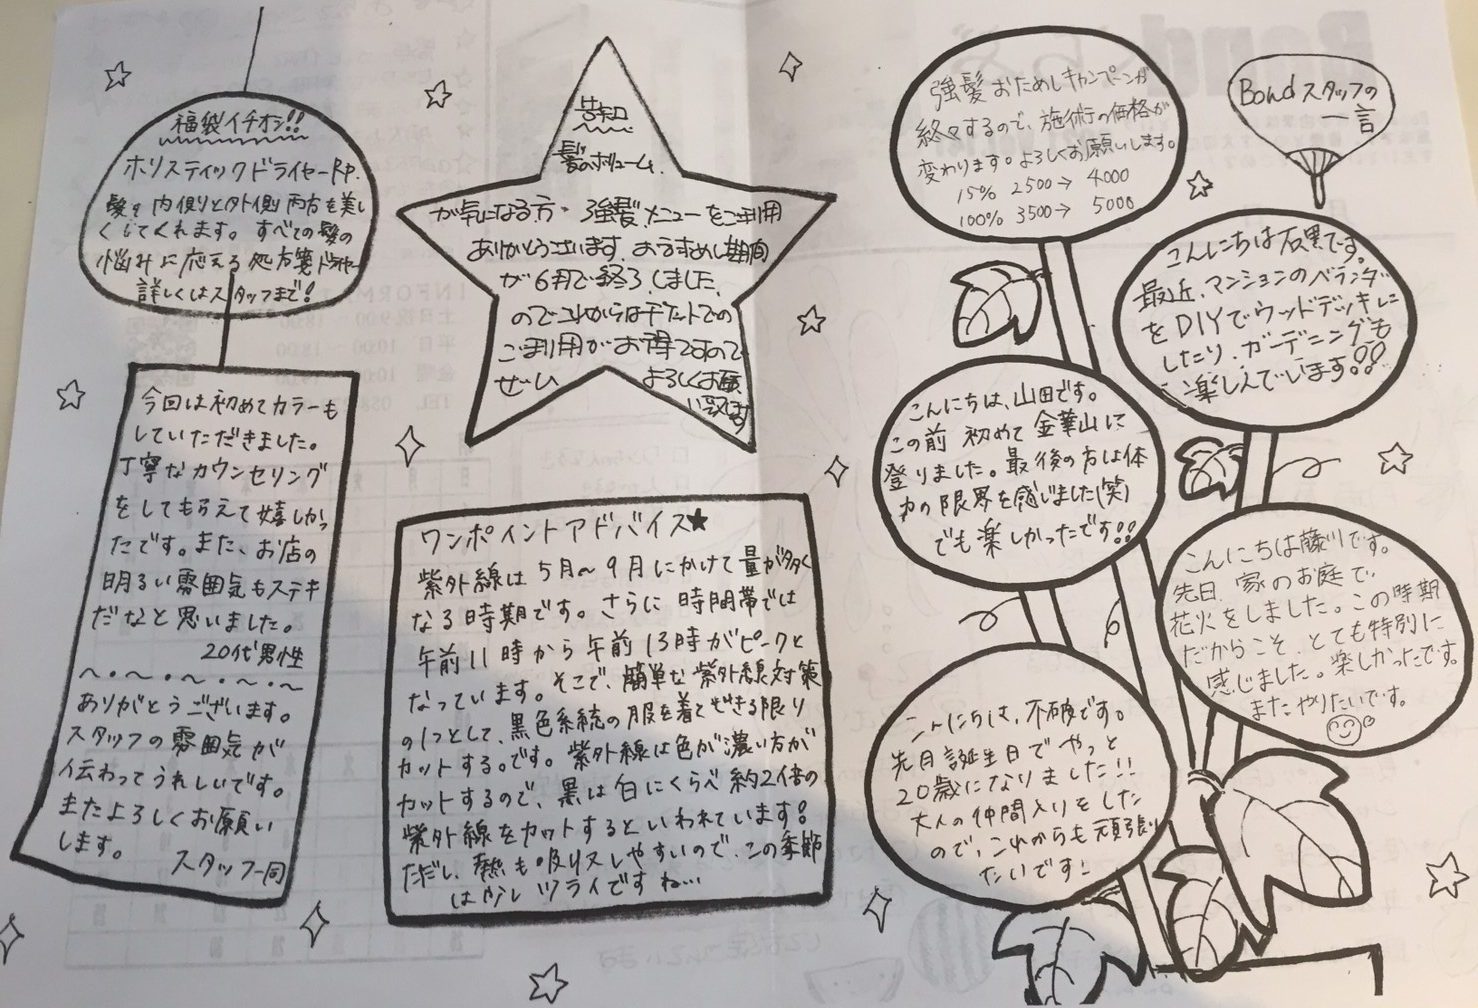 福袋イチオシ!!
ホリスティックドライヤーR.P.
髪を内側と外側両方を美し
くしてくれます。すべての髪の
悩みに応える処方箋ドライヤー
詳しくはスタッフまで!
今回は初めてカラーも
していただきました。
丁寧なカウンセリング
をしてもらえて嬉しかっ
たです。また、お店の
明るい雰囲気もステキ
だなと思いました。
20代男性
~・~・~・~・~
ありがとうございます。
スタッフの雰囲気が
伝わってうれしいです。
またよろしくお願い
します。
スタッフ一同
告知
髪のボリューム
が気になる方・強髪メニューをご利用
ありがとうございます。おすすめし期間
が6月で終了しました
のでこれからはチケットでの
ご利用がお得ですので
ぜひ よろしくお願
い致します
ワンポイントアドバイス★
紫外線は5月~9月にかけて量が多く
なる時期です。さらに時間帯では
午前11時から午前13時がピークと
なっています。そこで、簡単な紫外線対策
の1つとして、黒色系統の服を着てできる限り
カットする。です。紫外線は色が濃い方が
カットするので、黒は白にくらべ約2倍の
紫外線をカットするといわれています!
ただし、熱も吸収しやすいので、この季節
は少しツライですね…
Bondスタッフの
一言
強髪おためしキャンペーンが
終了するので、施術の価格が
変わります。よろしくお願いします。
15% 2500→ 4000
100% 3500→ 5000
こんにちは石黒です。
最近、マンションのベランダ
をDIYでウッドデッキに
したり、ガーデニングも
楽しんでいます!!
こんにちは、山田です。
この前 初めて金華山に
登りました。最後の方は体
力の限界を感じました(笑)
でも楽しかったです!!
こんにちは藤川です。
先日、家のお庭で、
花火をしました。この時期
だからこそ、とても特別に
感じました。楽しかったです。
またやりたいです。
こんにちは、不破です。
先月誕生日でやっと
20歳になりました!!
大人の仲間入りをした
ので、これからも頑張り
たいです!